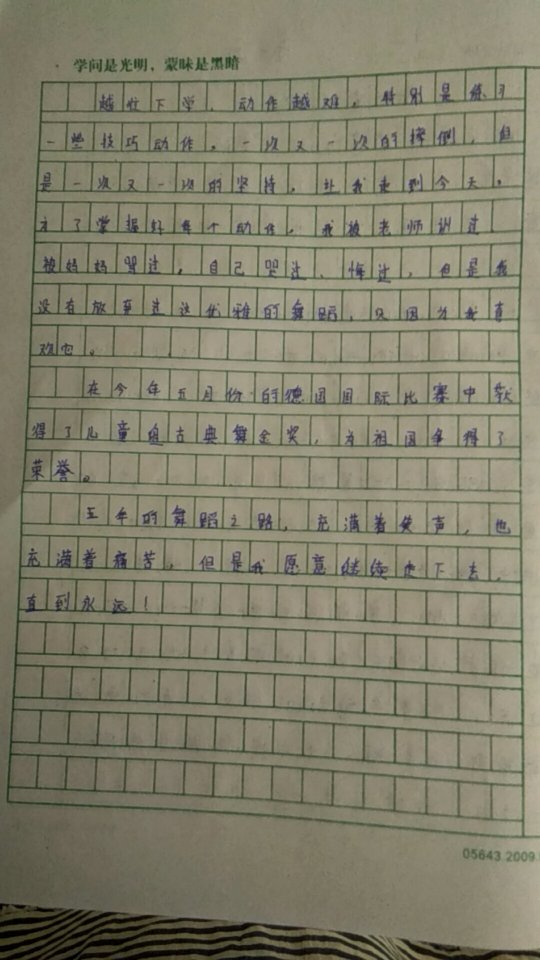 学问是光明，蒙昧是黑暗
越忙下学，动作越难，特别是练习
一些技巧动作。一次又一次的摔倒，但
是一次又一次的坚持，让我走到今天。
为了掌握好每个动作，我被老师训过
被妈妈骂过，自己哭过、悔过，但是我
没有放弃过这优雅的舞蹈，只因为我喜
欢它。
在今年五月份的德国国际比赛中获
得了儿童组古典舞金奖，为祖国争得了
荣誉。
五年的舞蹈之路，充满着笑声，也
充满着痛苦，但是我愿意继续走下去，
直到永远！
05643.2009